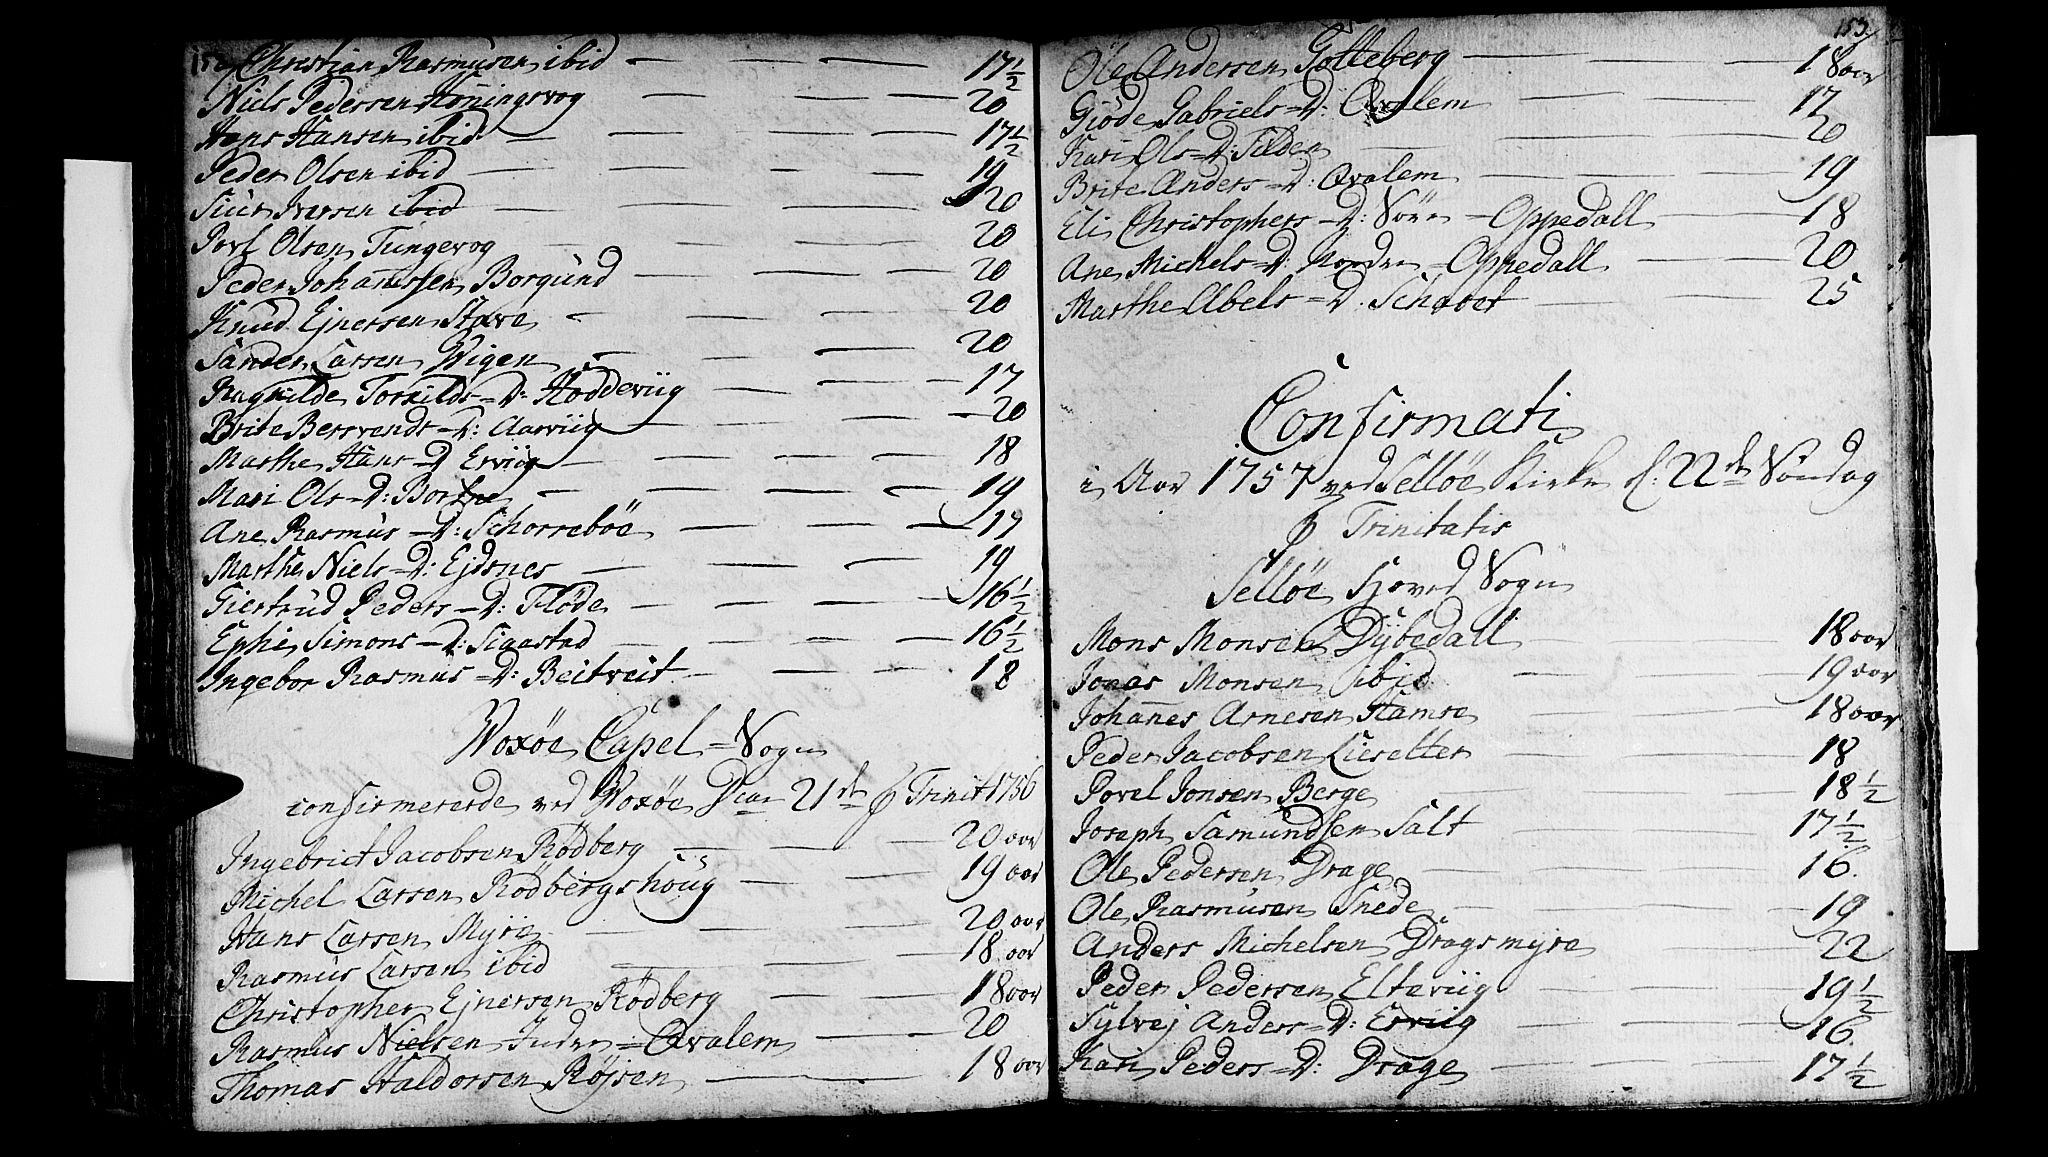 152
Christian Rasmusen ibid — 17½
Niels Pedersen Honingsvog — 20
Hans Hansen ibid — 17½
Peder Olsen ibid — 19
Siur Iversen ibid — 20
Povl Olsen Tungevog — 20
Peder Johanessen Borgund — 20
Knud Ejnersen Stave — 20
Sander Larsen Wigen — 20
Ragnilde Torkilds=D: Hoddeviig — 17
Brite Bersvends=D: Aarviig — 20
Marthe Hans=D Erviig — 18
Mari Ols=D: Bortne — 19
Ane Rasmus=D: Schorreböe — 17
Marthe Niels=D: Ejdsnes — 19
Giertrud Peders=D: Flöde — 16½
Ephie Simons=D: Sigastad — 16½
Ingebor Rasmus=D: Beitveit — 18
Woxöe Capel=Sogn
confirmerede ved Woxöe Dca 21de p Trinit 1756
Ingebrict Jacobsen Rödberg — 20 aar
Michel Larsen Rödbergshoug — 19 aar
Hans Larsen Myre — 20 aar
Rasmus Larsen ibid — 18 aar
Christopher Ejnersen Rödberg — 18 aar
Rasmus Nielsen Indre=Qvalem — 20
Thomas Haldorsen Röjsen — 18 aar
153.
Ole Andersen Totteberg — 18 aar
Giöde Gabriels=D: Qvalem — 17
Kari Ols=D: Silden — 20
Brite Anders=D: Qvalem — 19
Eli Christophers=D: Söre=Oppedall — 18
Ane Michels=D: Nordre=Oppedall — 20
Marthe Abels=D. Schavet — 25
Confirmati
i Aar 1757 ved Sellöe Kirke d: 22de Söndag
p Trinitatis
Sellöe Hoved Sogn
Mons Monsen Dybedall — 18 aar
Jonas Monsen ibid — 19 aar
Johannes Arnesen Hamre — 18 aar
Peder Jacobsen Liesetter — 18
Povel Jonsen Berge — 18½
Joseph Samundsen Salt — 17½
Ole Pedersen Drage — 16.
Ole Rasmusen Snede — 19
Anders Michelsen Dragsmyre — 22
Peder Pedersen Elteviig — 19½
Sylvej Anders=D: Erviig — 16.
Kari Peders=D: Drage — 17½